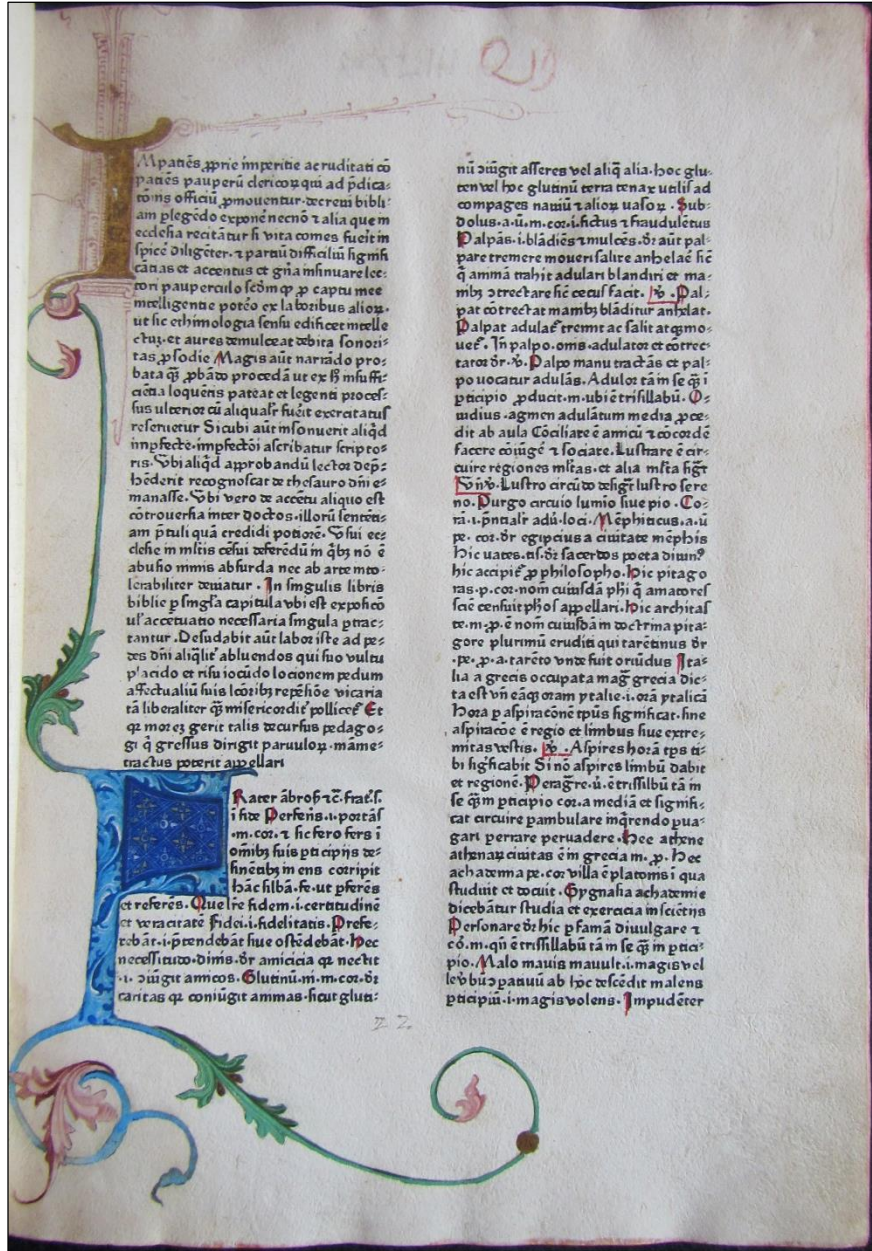 IMpatiēs ꝓprie imperitie ac ruditati cō
patiēs pauperū clericoꝝ qui ad p̄dica⸗
tōnis officiū ꝓmouentur · decreui bibli⸗
am ꝑlegēdo exponē necnō ⁊ alia que in
ecclesia recitātur si vita comes fuerit in
spicē diligēter · ⁊ partiū difficiliū signifi
cātias et accentus et gn̄a insinuare lec⸗
tori pauperculo scd̄m ꝙ ꝓ captu mee
intelligentie potēo ex laboribus alioꝝ ·
ut sic ethimologia sensu edificet intelle
ctuꝫ · et aures demulceat debita sonori⸗
tas ꝓsodie Magis aūt narrādo pro⸗
bata qꝫ̄ ꝓbādo procedā ut ex hꝫ insuffi⸗
ciētia loquens pateat et legenti proces⸗
sus ulterior cū aliqualr̄ fuēit exercitatus
reseruetur Sicubi aūt insonuerit aliqd̄
inꝑfecte · imꝑfectōi ascribatur scripto⸗
ris · Vbi aliqd̄ approbandū lector dep̄⸗
hēderit recognoscat de thesauro dn̄i e⸗
manasse · Vbi vero de accētu aliquo est
cōtrouersia inter doctos · illorū sentēti⸗
am p̄tuli quā credidi potiorē · Vsui ec⸗
clesie in mltis cēsui deferēdū in qꝫbꝫ nō ē
abusio nimis absurda nec ab arte into⸗
lerabiliter deuiatur · In singulis libris
biblie ꝑ singl̄a capitula vbi est exposicō
ul' accētuatio necessaria singula ꝑtrac⸗
tantur · Desudabit aūt labor iste ad pe⸗
des dn̄i aliqlit' abluendos qui suo vultu
placido et risu iocūdo locionem pedum
affectualiū suis lcōribꝫ repēsiōe vicaria
tā liberaliter qꝫ̄ misericordit' pollicet' Et
qꝛ moreꝫ gerit talis decursus pedago⸗
gi q̄ gressus dirigit paruuloꝝ · māme⸗
tractus poterit appellari
FRater ābros̄ ⁊c̄ · frat' · s ·
i fide Perferēs · i · portās
· m · cor · ⁊ sic fero fers ī
om̄ibꝫ suis ꝑticipijs de⸗
sinētibꝫ in ens corripit
hāc sillbā · fe · ut ꝑferēs
et referēs · Que lr̄e fidem · i · certitudinē
et veracitatē Fidei · i · fidelitatis · Prefe⸗
rebāt · i · p̄tendebāt siue ostēdebāt · Hec
necessitudo · dinis · dr̄ amicicia qꝛ nectit
· i · ɔiūgit amicos · Glutinū · ni · m · cor · dr̄
caritas qꝛ coniūgit animas · sicut gluti⸗
nū ɔiūgit asseres vel aliq̄ alia · hoc glu⸗
ten vel hoc glutinū terra tenax utilis ad
compages nauiū ⁊ alioꝝ uasoꝝ · Sub⸗
dolus · a · ū · m · cor · i · fictus ⁊ fraudulētus
Palpās · i · blādiēs ⁊ mulcēs · dr̄ aūt pal⸗
pare tremere moueri salire anhelae' sic̄
q̄ animā trahit adulari blandiri et ma⸗
nibꝫ ɔtrectare sic̄ cecus facit · ꝟ · Pal⸗
pat cōtrectat manibꝫ blāditur anhelat ·
Palpat adulat' tremit ac salit atqꝫ mo⸗
uet' · In̄ palpo · onis · adulator et cōtrec⸗
tator dr̄ · ꝟ · Palpo manu tractās et pal⸗
po uocatur adulās · Adulor tā in se qꝫ̄ ī
ꝑticipio ꝓducit · m · ubi ē trisillabū · O⸗
uidius · agmen adulātum media ꝓce⸗
dit ab aula Cōciliare ē amicū ⁊ cōcordē
facere cōiūgē ⁊ sociare · Lustrare ē cir⸗
cuire regiones mltas · et alia mlta sigt'
Vn̄ ꝟ · Lustro circūdo desigt' lustro sere
no · Purgo circuio lumīo siue pio · Co⸗
rā · i · pn̄tialr̄ adū · loci · Mēphiticus · a · ū
pe · cor · dr̄ egipcius a ciuitate mēphis
Hic uates · tis · dr̄ sacerdos poeta diuin⁹
hic accipit' ꝓ philosopho · Hic pitago
ras · p · cor · nom̄ cuiusdā phi q̄ amatores
sciē censuit phos appellari · Hic architas
te · m · p · ē nom̄ cuiusdā in doctrina pita⸗
gore plurimū eruditi qui tarētinus dr̄
· pe · p · a · tarēto vnde fuit oriūdus Ita⸗
lia a grecis occupata mag̃ grecia dic⸗
ta est vn̄ eāqꝫ oram ytalie · i · orā ytalicā
Hora ꝑ aspiratōnē tp̄us significat · sine
aspiracōe ē regio et limbus siue extre⸗
mitas vestis · ꝟ · Aspires horā tp̄s ti⸗
bi sig'ficabit Si nō aspires limbū dabit
et regionē · Peragr̄e · ū · ē trissillbū tā in
se qꝫ̄m ꝑticipio cor · a mediā et signifi⸗
cat circuire ꝑambulare inq̄rendo ꝑua⸗
gari perrare peruadere · Hec athene
athenaꝝ ciuitas ē in grecia m · p · Hec
achademia pe · cor villa ē platonis ī qua
studuit et docuit · Gygnasia achademie
dicebātur studia et exercicia in sciētijs
Personare dr̄ hic ꝑ famā diuulgare ⁊
cō · m · qn̄ ē trissillabū tā in se qꝫ̄ in ꝑtici⸗
pio · Malo mauis mauult · i · magis vel
le vbū ɔpatiuū ab hoc descēdit malens
ꝑticipiū · i · magis volens · Impudēter